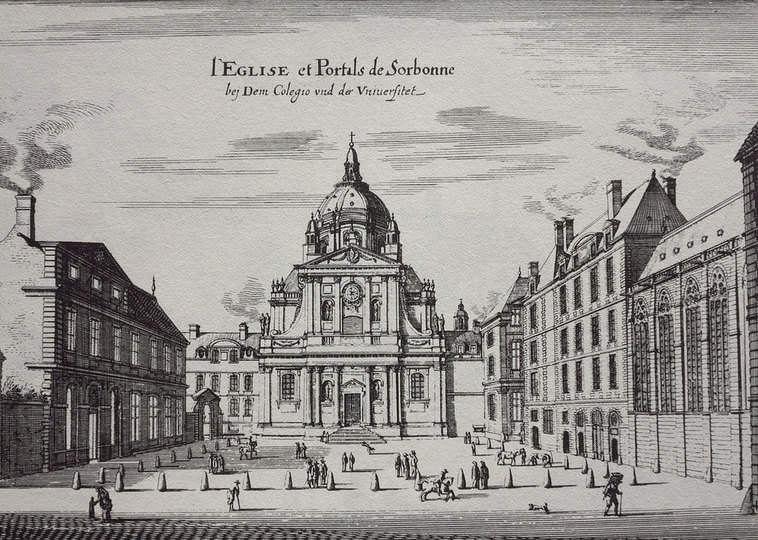 l'EGLISE et Portals de Sorbonne
bej Dem Colegio vnd der Vniuersitet